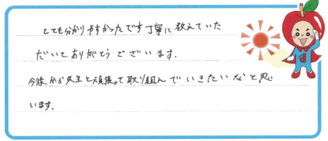 とても分かりやすかったです丁寧に教えていた
だいてありがとうございます。
今後、かが先生と頑張って取り組んでいきたいなと思
います。